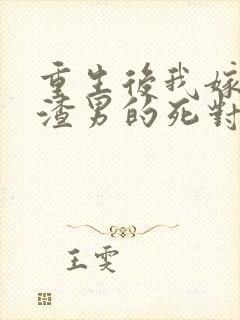 重生後我嫁
渣男的死對
王雯